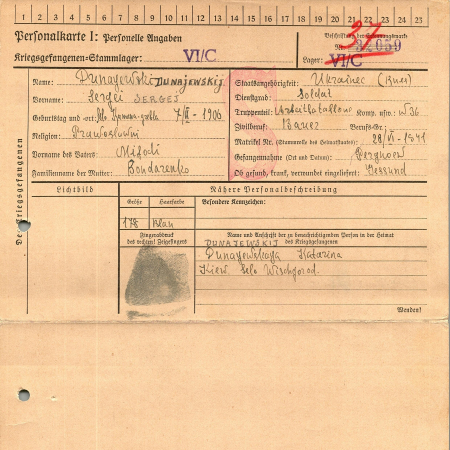 1 2 3 4 5 6 7 8 9 10 11 12 13 14 15 16 17 18 19 20 21 22 23 24 25
Personalkarte I: Personelle Angaben
Kriegsgefangenen-Stammlager: VI/C
Beschriftung der Erkennungsmarke
Nr. 32059
Lager: VI/C
Des Kriegsgefangenen
Name: Dunajewski DUNAJEWSKIJ
Vorname: Sergei SERGEJ
Geburtstag und -ort: 7/III - 1906
Religion: Prawoslawni
Vorname des Vaters: Mifodi
Familienname der Mutter: Bondarenko
Staatsangehörigkeit: Ukrainec (Russ)
Dienstgrad: Soldat
Truppenteil: Komp. usw.: N 36
Zivilberuf: Bauer Berufs-Gr.:
Matrikel Nr. (Stammrolle des Heimatstaates): 28/VI - 1941
Gefangennahme (Ort und Datum):
Ob gesund, krank, verwundet eingeliefert: Gessund
Lichtbild
Nähere Personalbeschreibung
Größe Haarfarbe Besondere Kennzeichen:
178 Blau
Fingerabdruck
des rechten! Zeigefingers
Name und Anschrift der zu benachrichtigenden Person in der Heimat
DUNAJEWSKIJ des Kriegsgefangenen
Dunajewskaja Katarina
Kiew Selo Wischgorod.
Wenden!